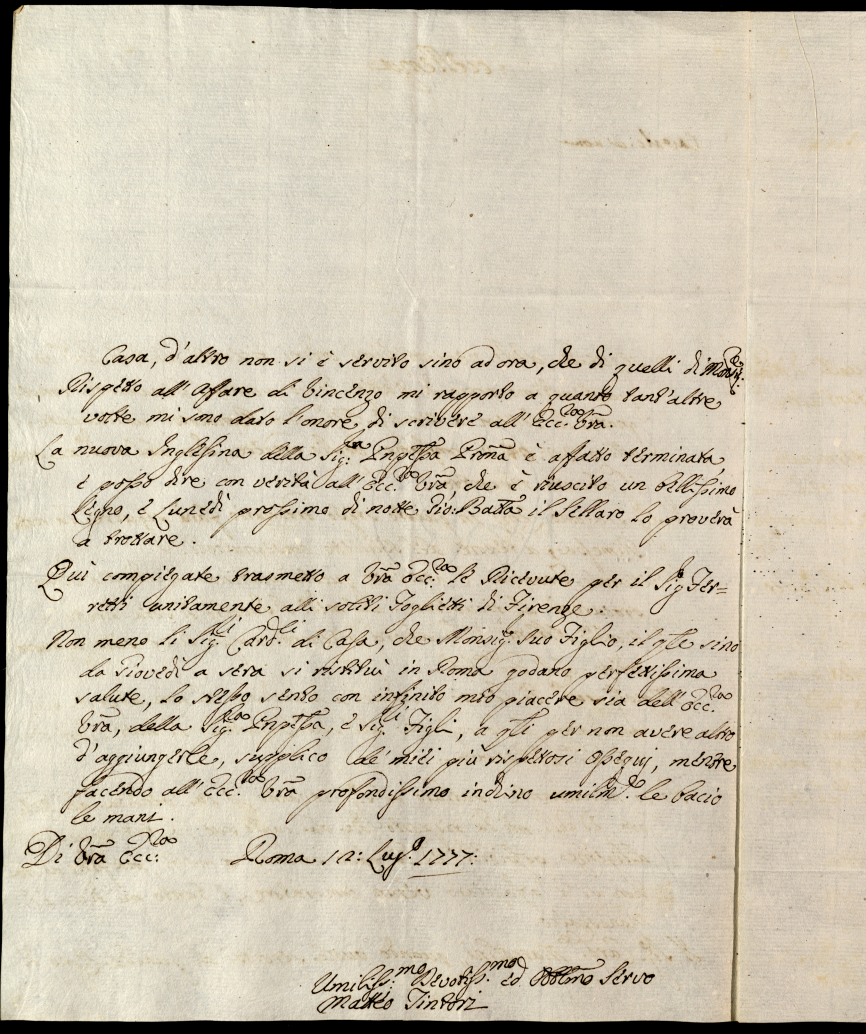 Casa, d'altro non si è servito sino ad ora, che di quelli di Monsig.re
Rispetto all'Affare di Vincenzo mi rapporto a quanto tant'altre
volte mi sono dato l'onore di scrivere all'Ecc:za Vrã.
La nuova Inglesina della Sig:ra Pnpẽssa Proñã è affatto terminata,
e posso dire con verità all'Ecc:za Vrã che è riuscito un bellissimo
legno, e Lunedì prossimo di notte Gio: Batta il Sellaro lo proverà
a trottare.
Quì compiegate trasmetto a Vrã Ecc:za le Ricevute per il Sig.r Fer=
retti unitamente alli soliti Foglietti di Firenze.
Non meno li Sig:ri Card:li di Casa, che Monsig:r Suo Figlio, il qle sino
da Giovedì a sera si restituì in Roma godano perfettissima
salute, lo stesso sento con infinito mio piacere sia dell'Ecc:za
Vrã, della Sig:ra Pnpẽssa, e Sig:ri Figli, a qli per non avere altro
d'aggiungerle, supplico de' miei più rispettosi Ossequj, mentre
facendo all'Ecc:za Vrã profondissimo inchino umilm.te le bacio
le mani.
Di Vrã Ecc:za Roma 12: Lug.o 1777:
Umiliss:mo Devotiss:mo ed Obblmo Servo
Matteo Tintori